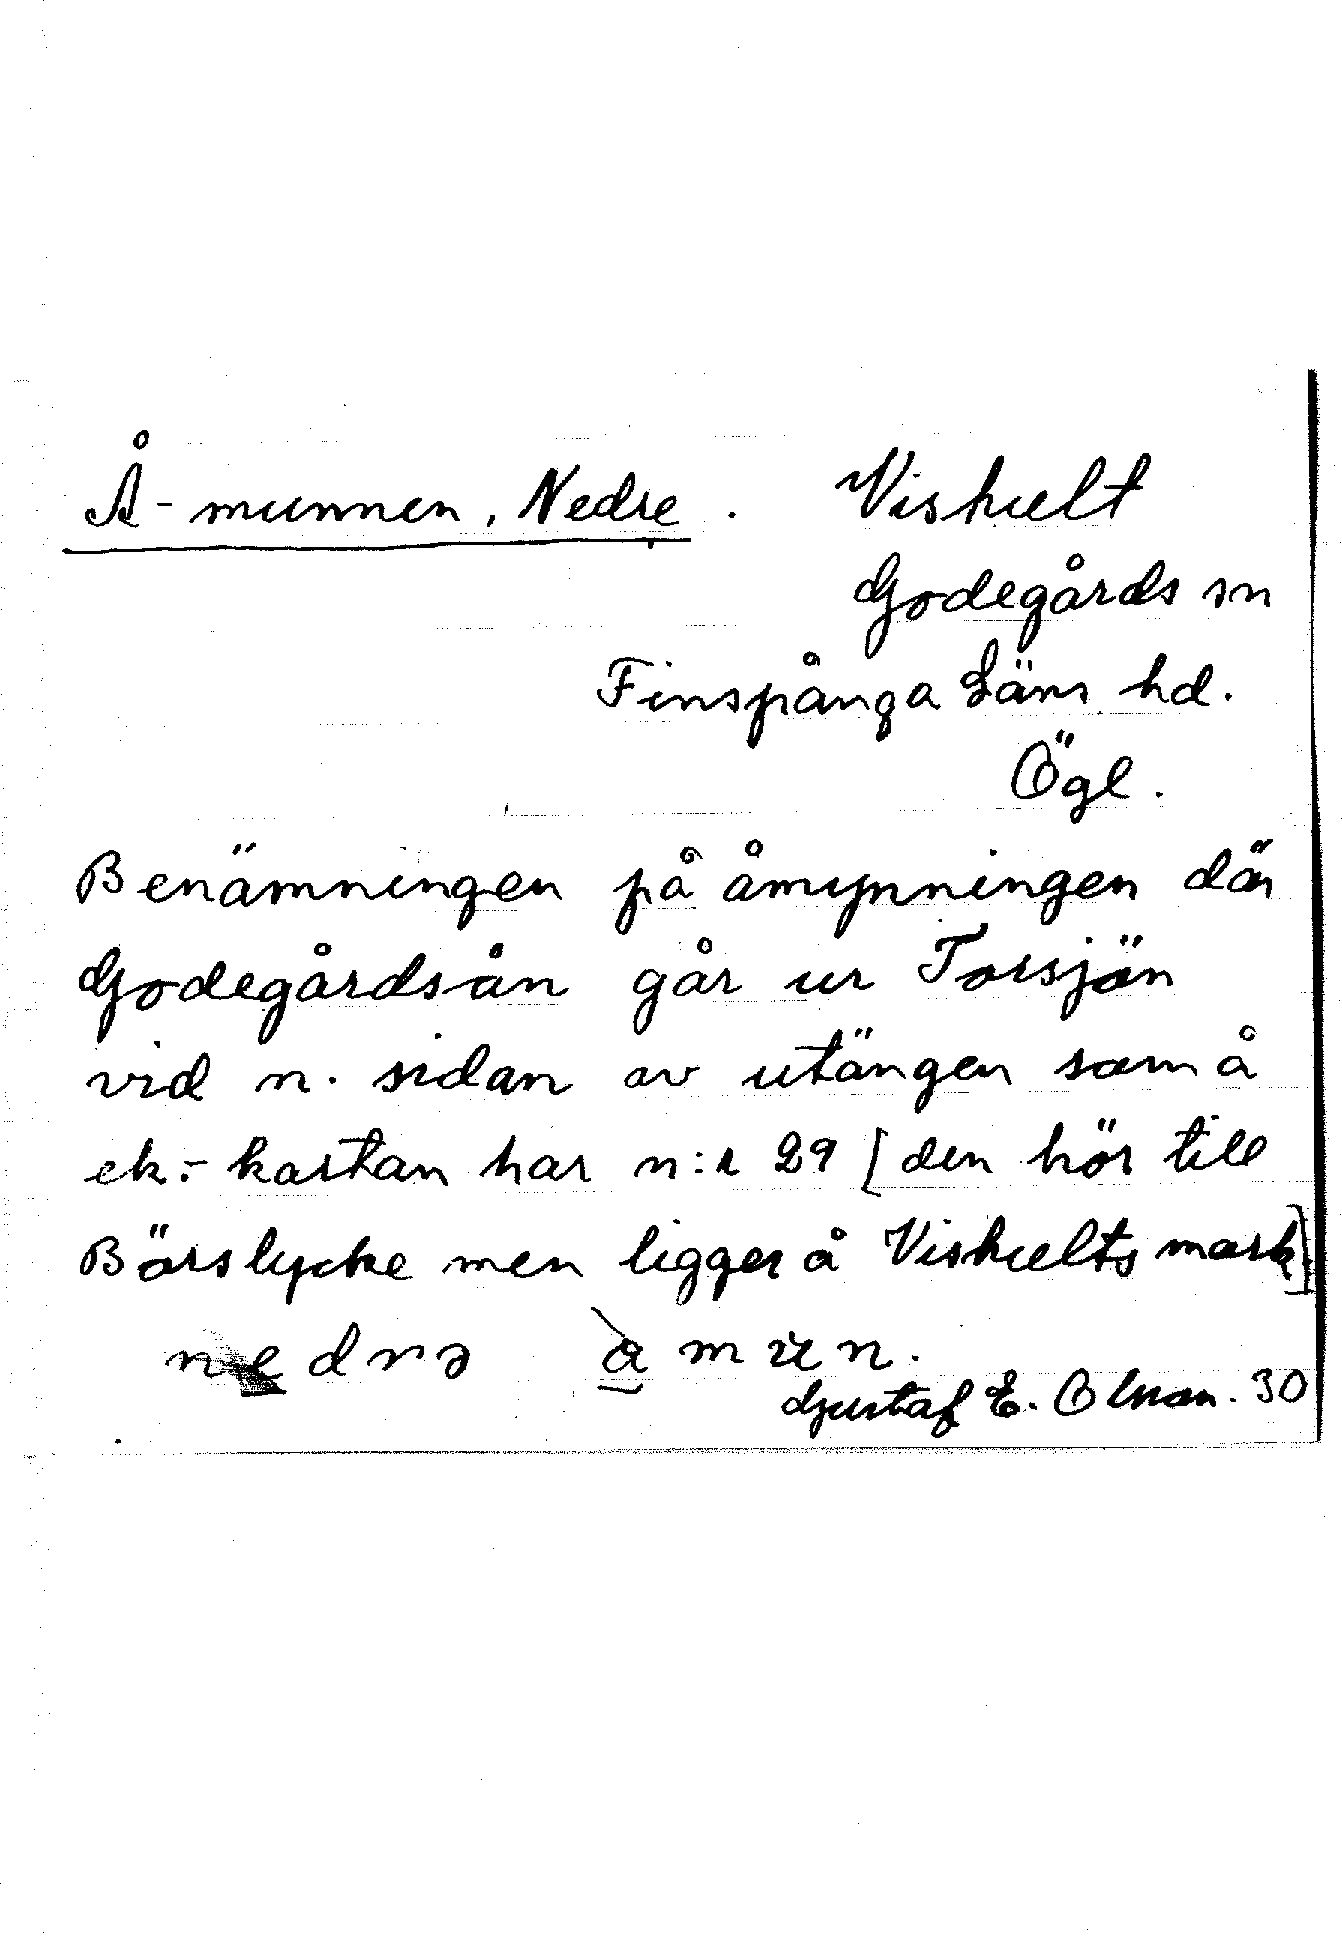 Å-munnen, Nedre. Viskult
Godegårds sn
Finspånga Läns hd.
Ögl.
Benämningen på åmynningen där
Godegårdsån går ur Torsjön
vid n. sidan av utängen som å
ek.-kartan har n:r 29 [den hör till
Börslycke men ligger å Viskults mark]
nedrə amun.
Gustaf E. Olson. 30